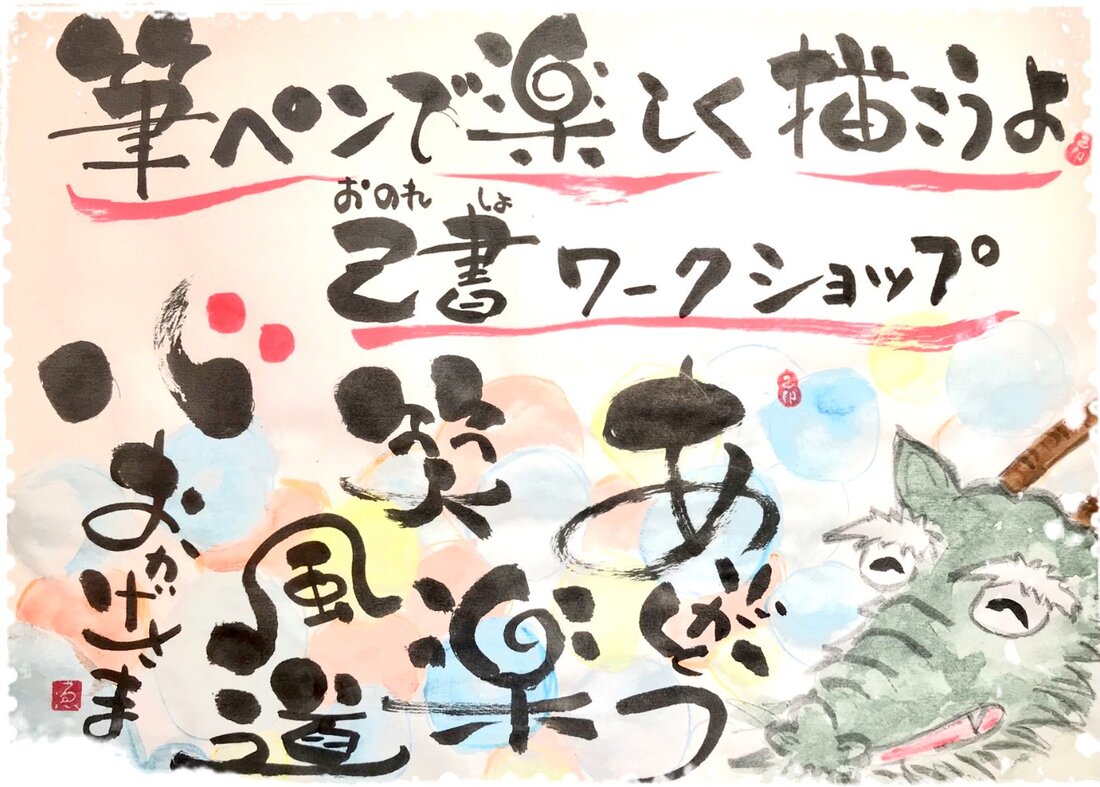 筆ペンで楽しく描こうよ
おのれ しょ
己書 ワークショップ
ありがとう
笑
楽
風
道
心
おかげさま